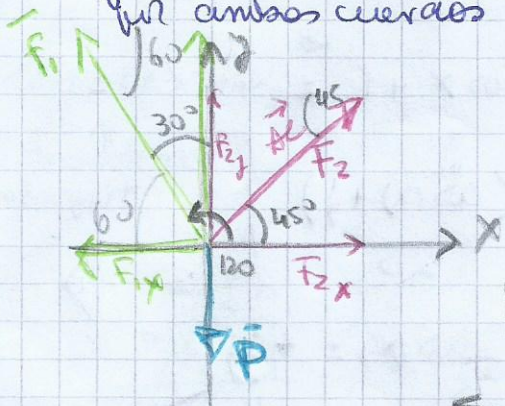 por ambas cuerdas
F₁ 60 y
30° F₂y 45 F₂
60 45° X
F₁x 120 F₂x
P